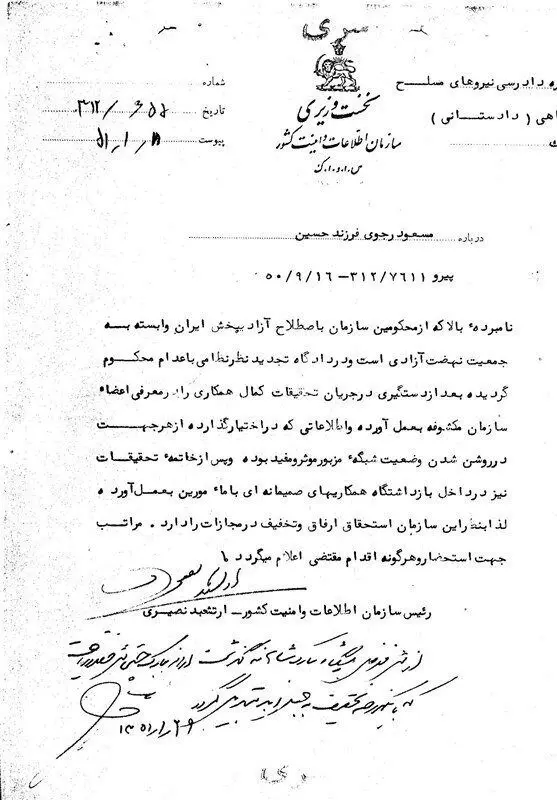 سری
ره دادرسی نیروهای مسلح
اهی ( دادستانی )
نخست وزیری
سازمان اطلاعات و امنیت کشور
س.ا.و.ا.ک
شماره
تاریخ ۳۱۲/
پیوست
درباره مسعود رجوی فرزند حسین
پیرو ۳۱۲/۷۶۱۱ – ۵۰/۹/۱۶
نامبرده بالا که از محکومین سازمان باصطلاح آزادیبخش ایران وابسته به
جمعیت نهضت آزادی است و در دادگاه تجدید نظر نظامی باعدام محکوم
گردیده بعد از دستگیری در جریان تحقیقات کمال همکاری را در معرفی اعضاء
سازمان مکشوفه بعمل آورده و اطلاعاتی که در اختیار گذارده از هر جهت
در روشن شدن وضعیت شبکه مزبور موثر و مفید بوده و پس از خاتمه تحقیقات
نیز در داخل بازداشتگاه همکاریهای صمیمانه ای با مامورین بعمل آورده
لذا بنظر این سازمان استحقاق ارفاق و تخفیف در مجازات را دارد . مراتب
جهت استحضار و هرگونه اقدام مقتضی اعلام میگردد
رئیس سازمان اطلاعات و امنیت کشور – ارتشبد نصیری
از شرف عرض پیشگاه مبارک شاهانه گذشت
که با یکدرجه تخفیف به حبس ابد تبدیل گردد
۱۳۵۱/۱/۲۹
ری